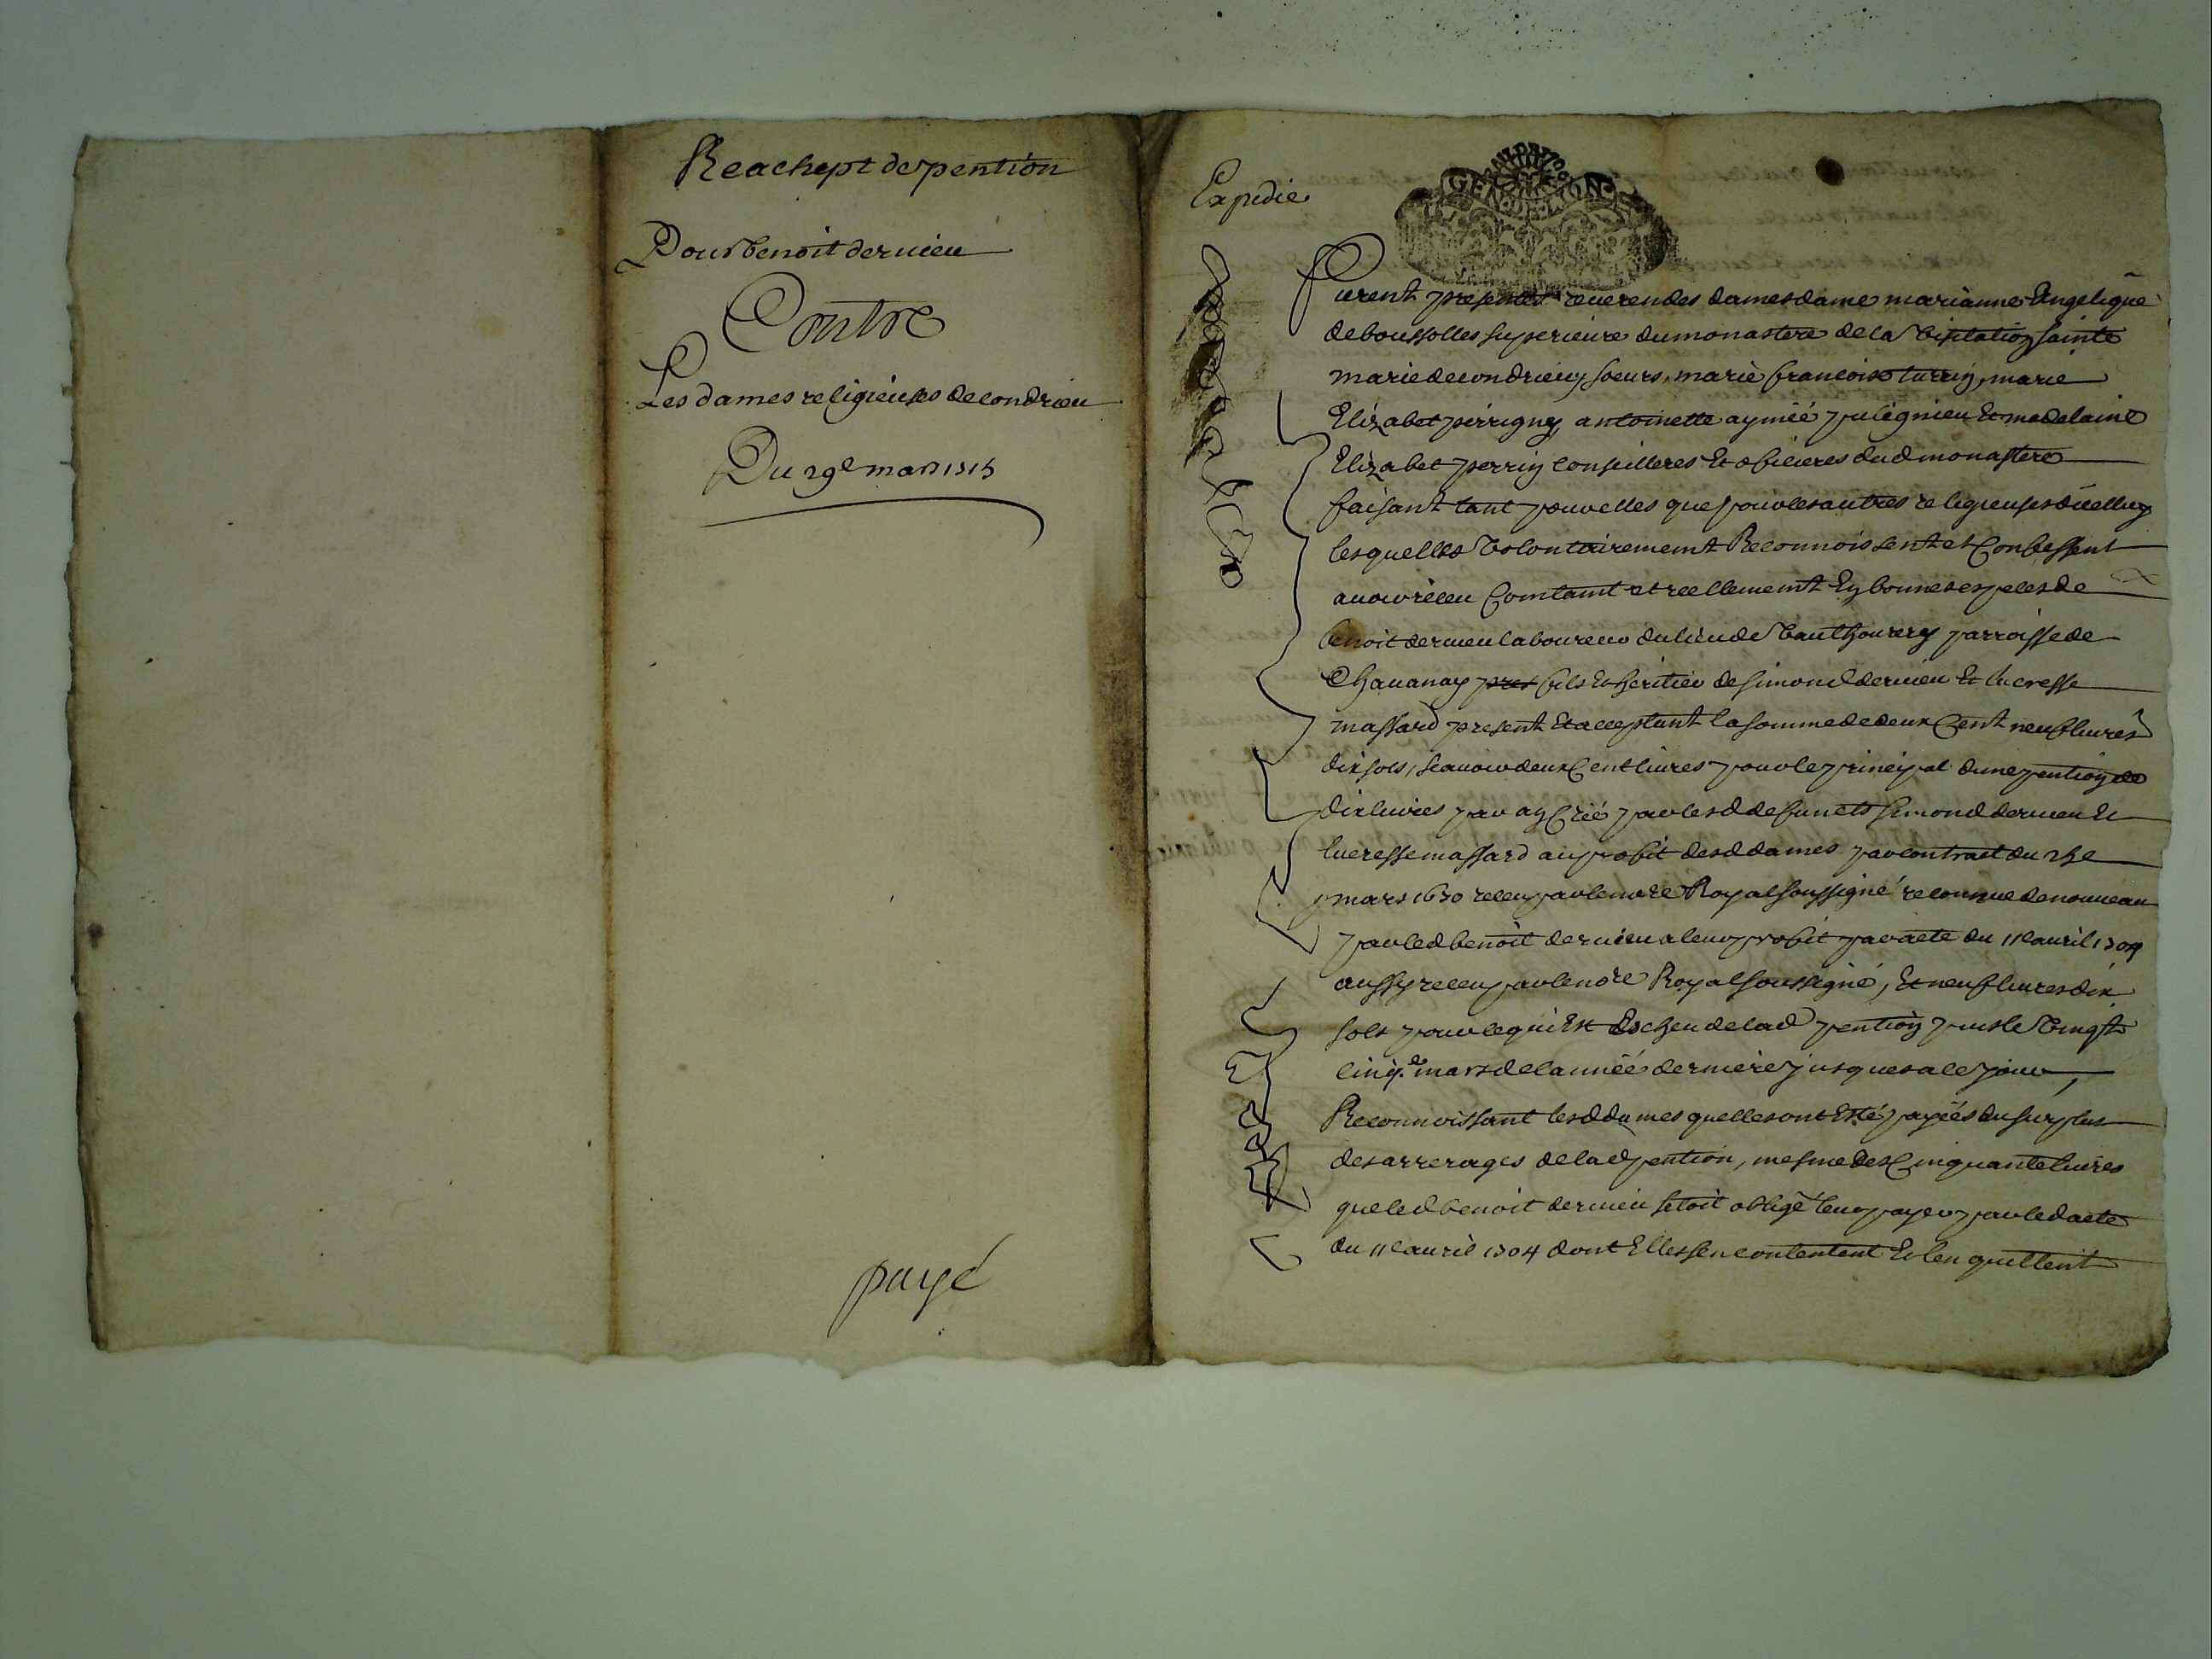 Reachept de pention
Pour benoit dervieu
Contre
Les dames religieuses de condrieu
Du 29e mars 1715
payé
Expedie
GEN DE LION
furent presentes reverendes dames dame marianne Angelique
de boussolles superieure du monastere de la visitation sainte
marie de condrieu, soeurs, marie francoise turrin, marie
Elizabet perrigny, antoinette aymée pulignieu Et madelaine
Elizabet perrin conseilleres Et oficieres dud monastere
faisant tant pour elles que pour les autres religieuses dicelluy
lesquelles volontairement Reconnoissent et Confessent
avoir receu Comtamt et reellement En bonnes especes de
benoit dervieu laboureur du lieu de parroisse de
Chavanay pres fils Et heritier de simond dervieu Et lucresse
massard present Et acceptant la somme de deux Cent neuf livres
dix sols, scavoir deux Cent livres pour le principal dune pention de
dix livres par an Créé par lesd defuncts simond dervieu Et
lucresse massard au profit desd dames par contract du 25e
mars 1690 receu par le nore Royal soussigné reconnue de nouveau
par led benoit dervieu a leur profit par acte du 11e avril 1704
aussy receu par le nore Royal soussigné, Et neuf livres dix
sols pour le qui Est Escheu de lad pention puis le vingt
cinq.e mars de lannéé derniere jusques a ce jour,
Reconnoissant lesd dames quelles ont Esté payéés du surplus
des arrerages de lad pention, mesme des Cinquante livres
que led benoit dervieu setoit obligé leur payer par led acte
du 11e avril 1704 dont Elles sen contentent Et len quittent